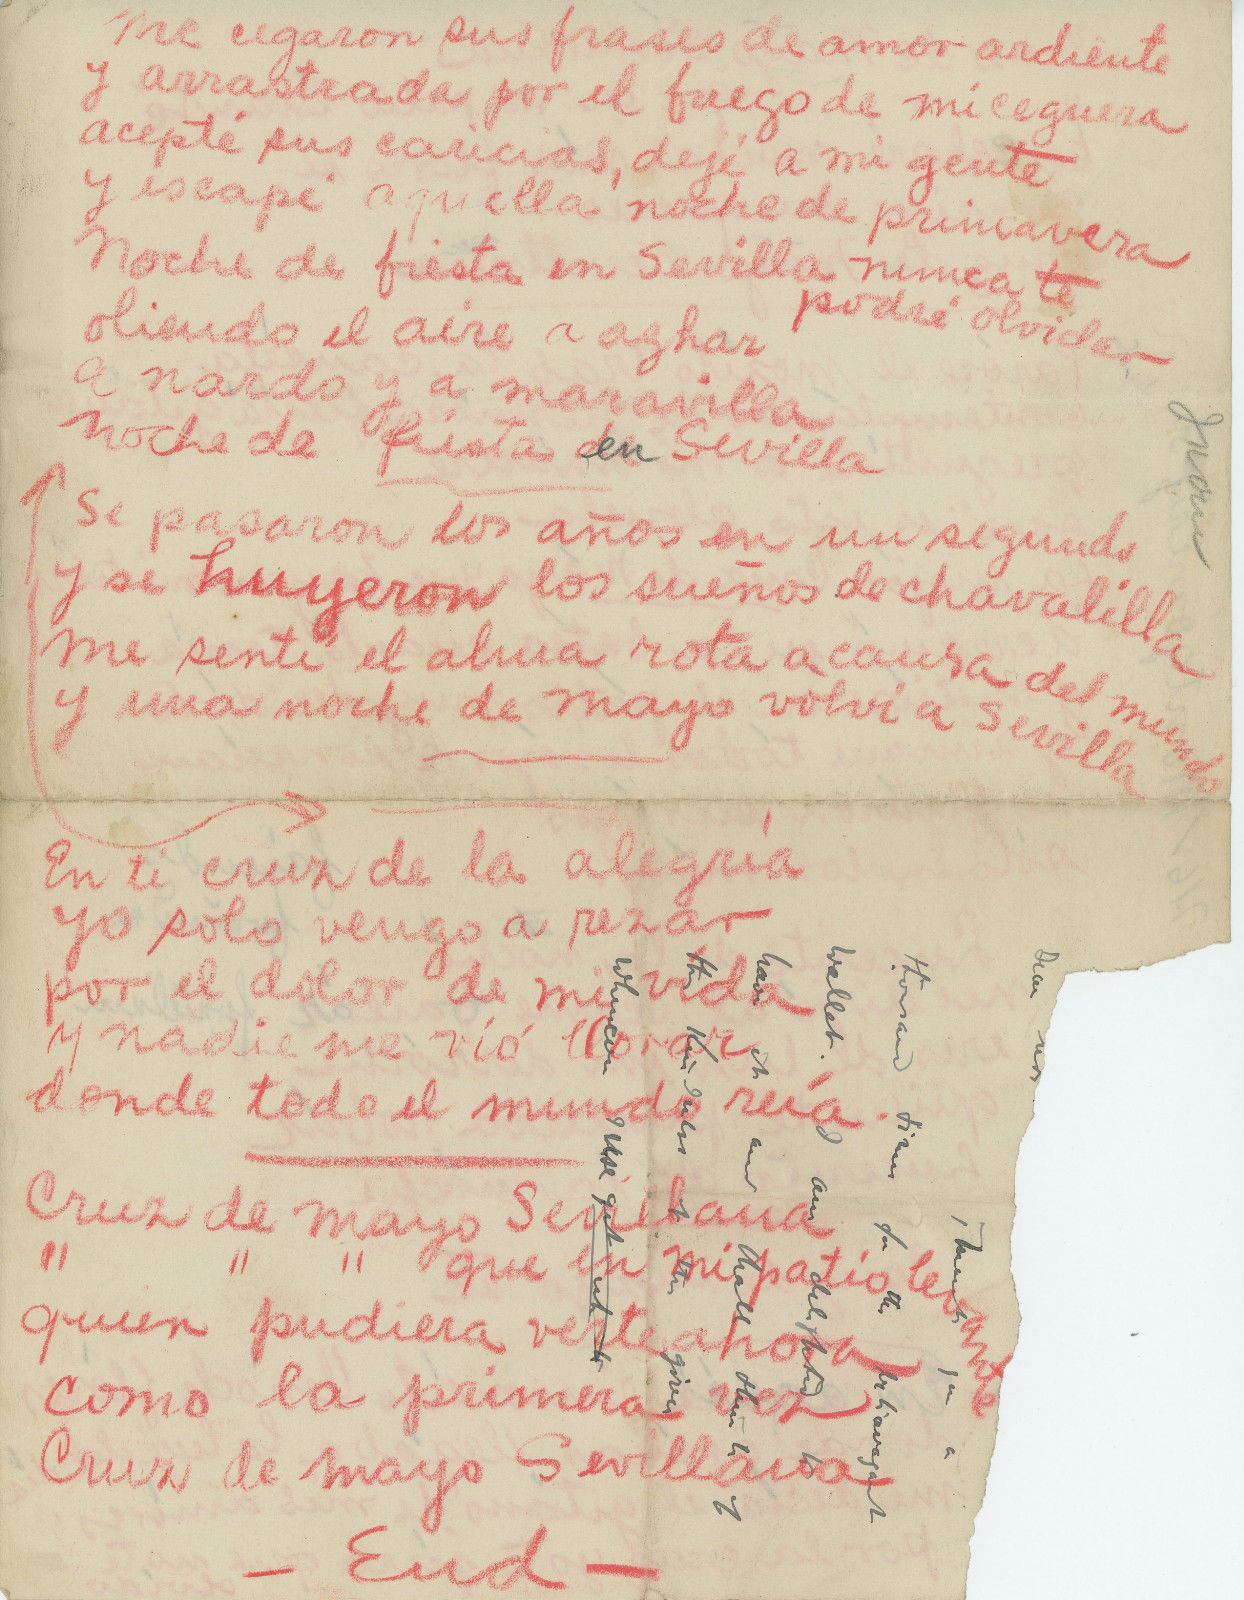 Me cegaron sus frases de amor ardiente
y arrastrada por el fuego de mi ceguera
acepté sus caricias, dejé a mi gente
y escapé aquella noche de primavera
Noche de fiesta en Sevilla nunca te
podré olvidar
oliendo el aire a aghar
a nardo y a maravilla
Noche de fiesta en Sevilla
Se pasaron los años en un segundo
y se huyeron los sueños de chavalilla
me sentí el alma rota a causa del mundo
y una noche de mayo volví a Sevilla
En ti cruz de la alegría
yo solo vengo a rezar
por el dolor de mi vida
y nadie me vió llorar
donde todo el mundo reía.
Cruz de mayo Sevillana
" " " que en mi patio levanté
quien pudiera verte ahora
como la primera vez
Cruz de mayo Sevillana
— End —
Dear
Thank you a
thousand times for the extravagant
wallet. I am delighted to
have it and shall think of
the kindness of the giver
whenever I use it